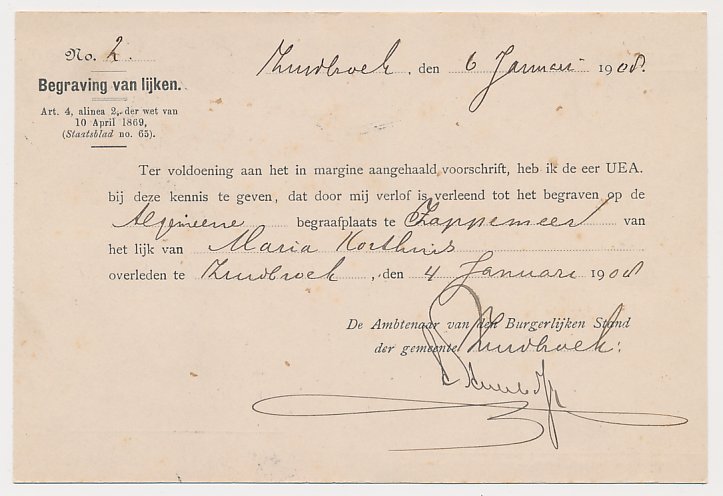 No. 2.
Zuidbroek, den 6 Januari 1908.
Begraving van lijken.
Art. 4, alinea 2, der wet van
10 April 1869,
(Staatsblad no. 65).
Ter voldoening aan het in margine aangehaald voorschrift, heb ik de eer UEA.
bij deze kennis te geven, dat door mij verlof is verleend tot het begraven op de
Algemeene begraafplaats te Sappemeer van
het lijk van Maria Korthuis
overleden te Zuidbroek, den 4 Januari 1908
De Ambtenaar van den Burgerlijken Stand
der gemeente Zuidbroek: